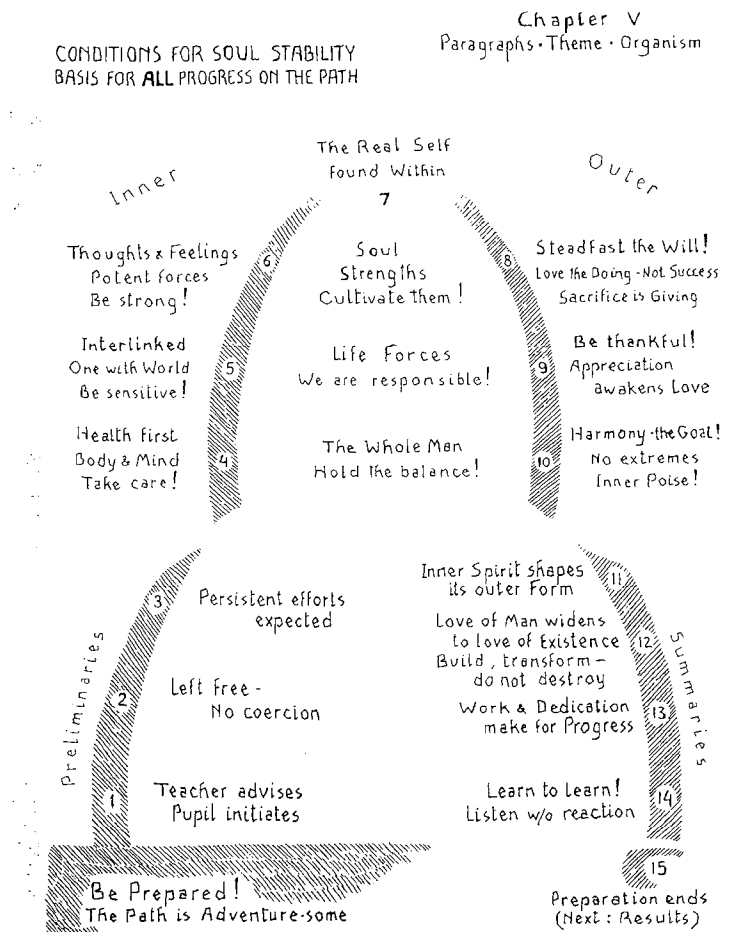 Chapter V
Paragraphs · Theme · Organism
CONDITIONS FOR SOUL STABILITY
BASIS FOR ALL PROGRESS ON THE PATH
Inner
The Real Self
found Within
7
Outer
6
Thoughts & Feelings
Potent forces
Be strong!
Soul
Strengths
Cultivate them!
8
Steadfast the Will!
Love the Doing - Not Success
Sacrifice is Giving
5
Interlinked
One with World
Be sensitive!
Life Forces
We are responsible!
9
Be thankful!
Appreciation
awakens Love
4
Health first
Body & Mind
Take care!
The Whole Man
Hold the balance!
10
Harmony - the Goal!
No extremes
Inner Poise!
Preliminaries
3
Persistent efforts
expected
2
Left free -
No coercion
1
Teacher advises
Pupil initiates
Be Prepared!
The Path is Adventure-some
Summaries
11
Inner Spirit shapes
its outer Form
12
Love of Man widens
to love of Existence
Build, transform -
do not destroy
13
Work & Dedication
make for Progress
14
Learn to learn!
Listen w/o reaction
15
Preparation ends
(Next : Results)